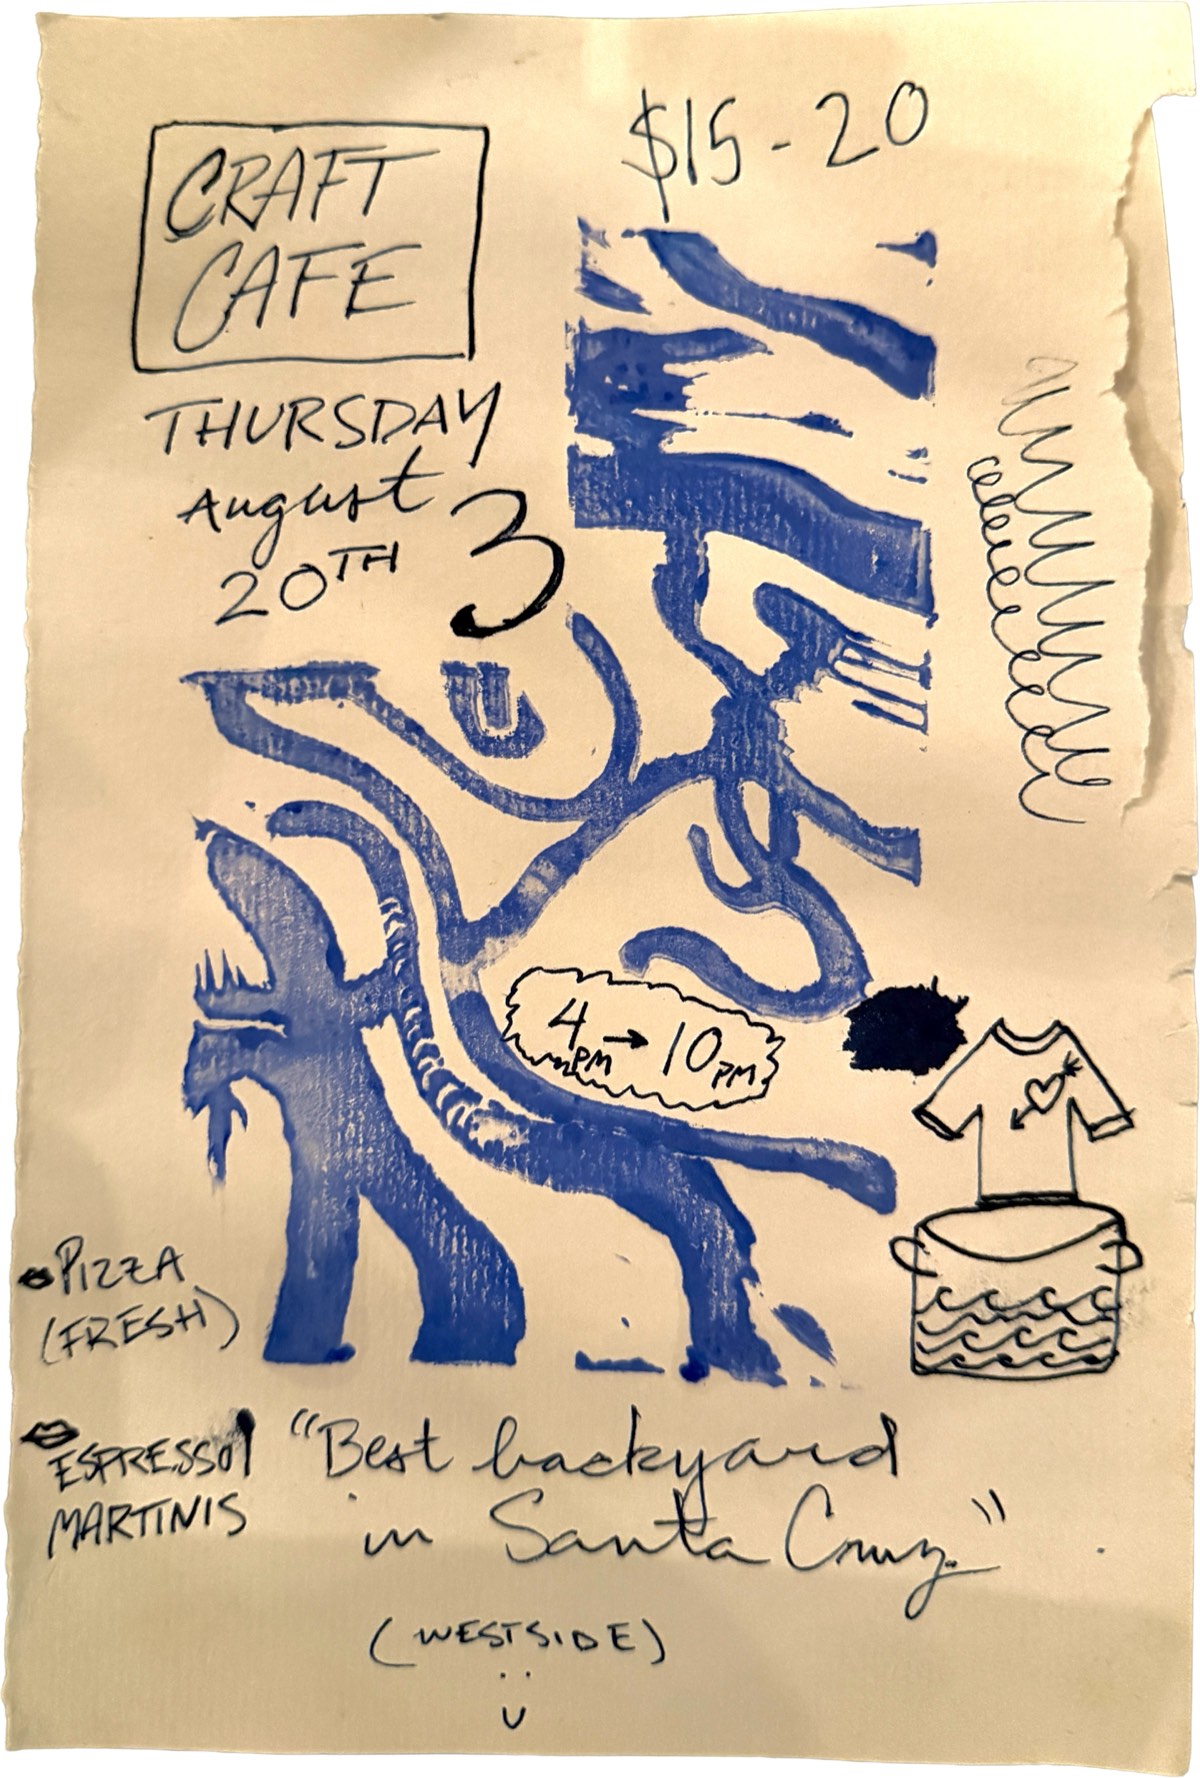 $15-20
CRAFT
CAFE
THURSDAY
August
20TH
3
4PM → 10PM
PIZZA
(FRESH)
ESPRESSO
MARTINIS
"Best backyard
in Santa Cruz."
(WESTSIDE)